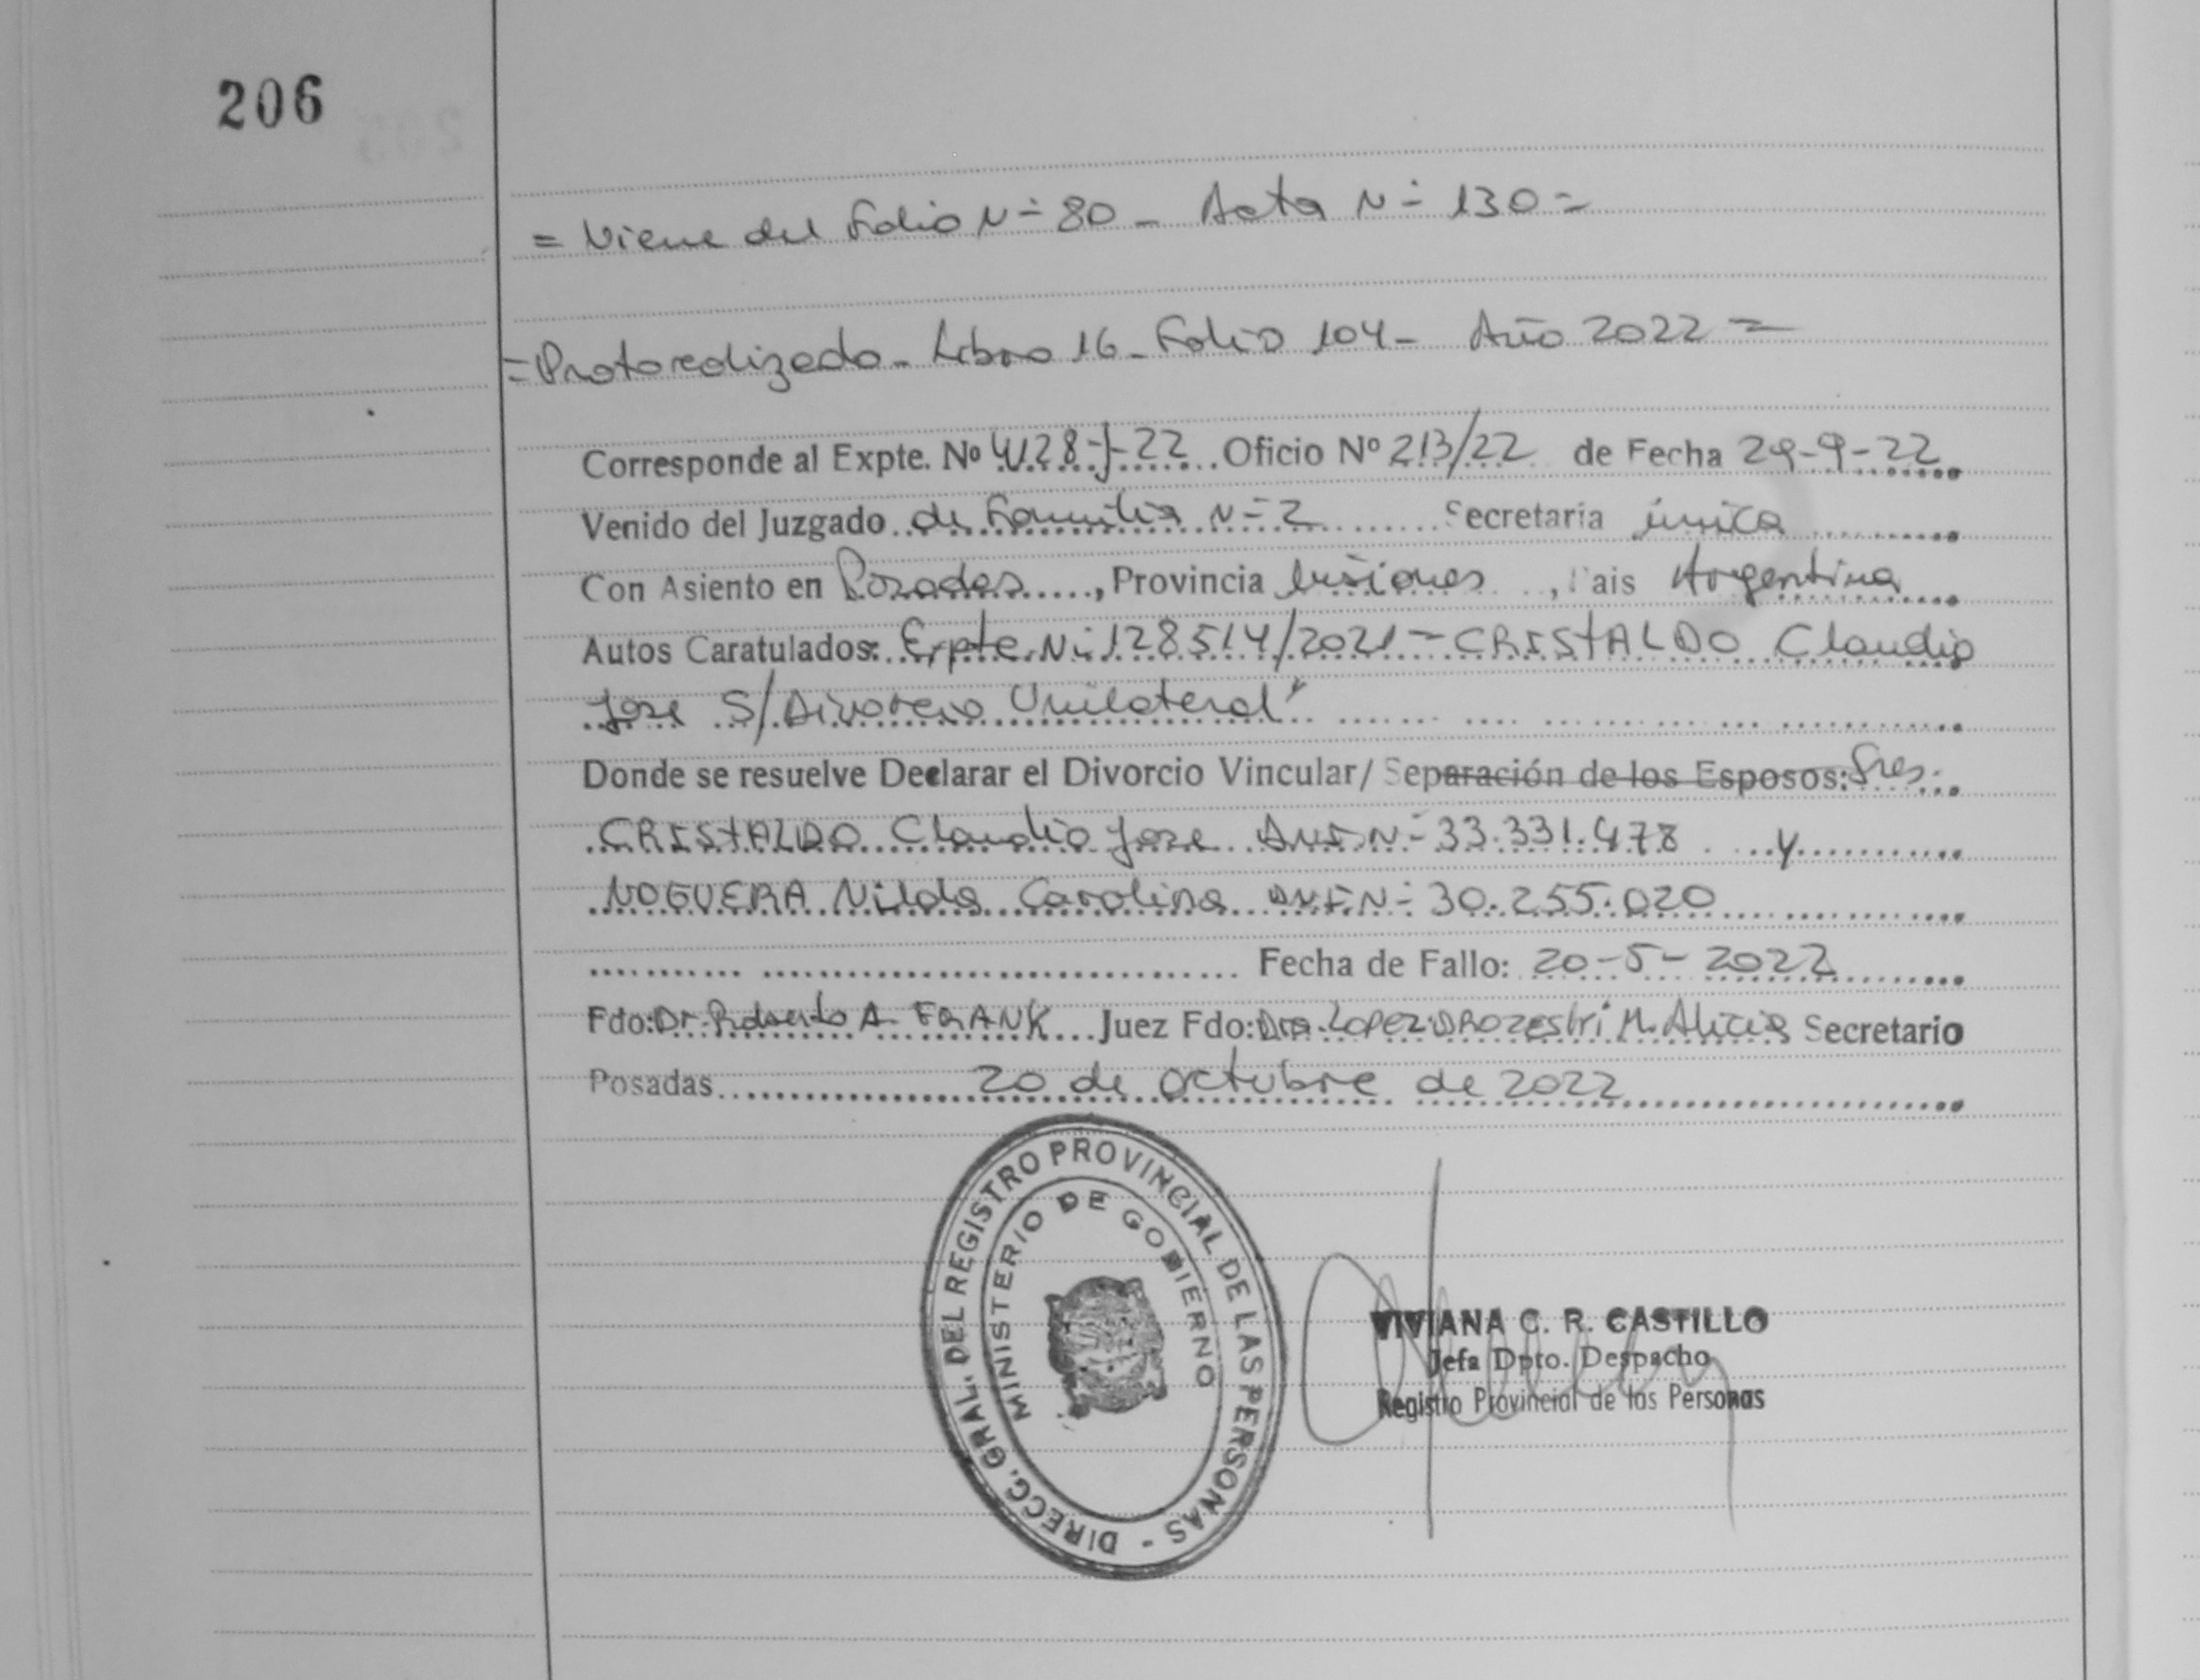 206
= Viene del Folio N= 80 - Acta N= 130 =
= Protocolizado - Libro 16 - Folio 104 - Año 2022 =
Corresponde al Expte. Nº 4128-J-22 Oficio Nº 213/22 de Fecha 29-9-22
Venido del Juzgado de Familia N= 2 Secretaria única
Con Asiento en Posadas, Provincia Misiones, Pais Argentina
Autos Caratulados: Expte. N: 128514/2021 - CRISTALDO Claudio
Jose S/Divorcio Unilateral"
Donde se resuelve Declarar el Divorcio Vincular/ Separación de los Esposos: Sres.
CRISTALDO Claudio Jose DNI N= 33.331.478 y
NOGUERA Nilda Carolina DNI N= 30.255.020
Fecha de Fallo: 20-5-2022
Fdo: Dr. Roberto A. FRANK Juez Fdo: Dra. LOPEZ M. Alicia Secretario
Posadas 20 de octubre de 2022
DIRECC. GRAL. DEL REGISTRO PROVINCIAL DE LAS PERSONAS -
MINISTERIO DE GOBIERNO
VIVIANA C. R. CASTILLO
Jefa Dpto. Despacho
Registro Provincial de las Personas